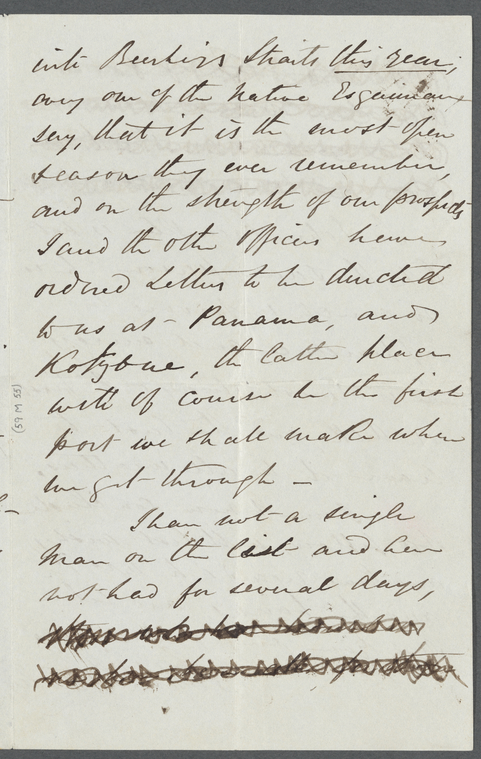 into Beerhings Straits this year;
every one of the native Esquimaux
say, that it is the most open
season they ever remember,
and on the strength of our prospects
I and the other Officers have
ordered Letters to be directed
to us at - Panama, and
Kotzbue, the latter place
will of course be the first
port we shall make when
we get through -
I have not a single
Man on the list and have
not had for several days,
(59 M 55)